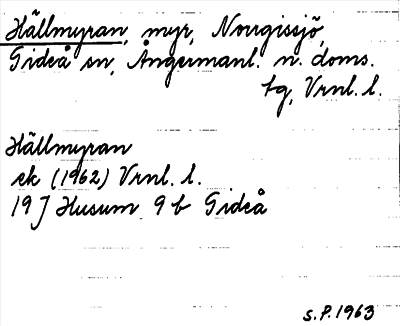 Hällmyran, myr, Norrgissjö,
Gideå sn, Ångermanl. n. doms.
bg, Vrnl. l.
Hällmyran
ek (1962) Vrnl. l.
19 J Husum 9 b Gideå
S.P. 1963